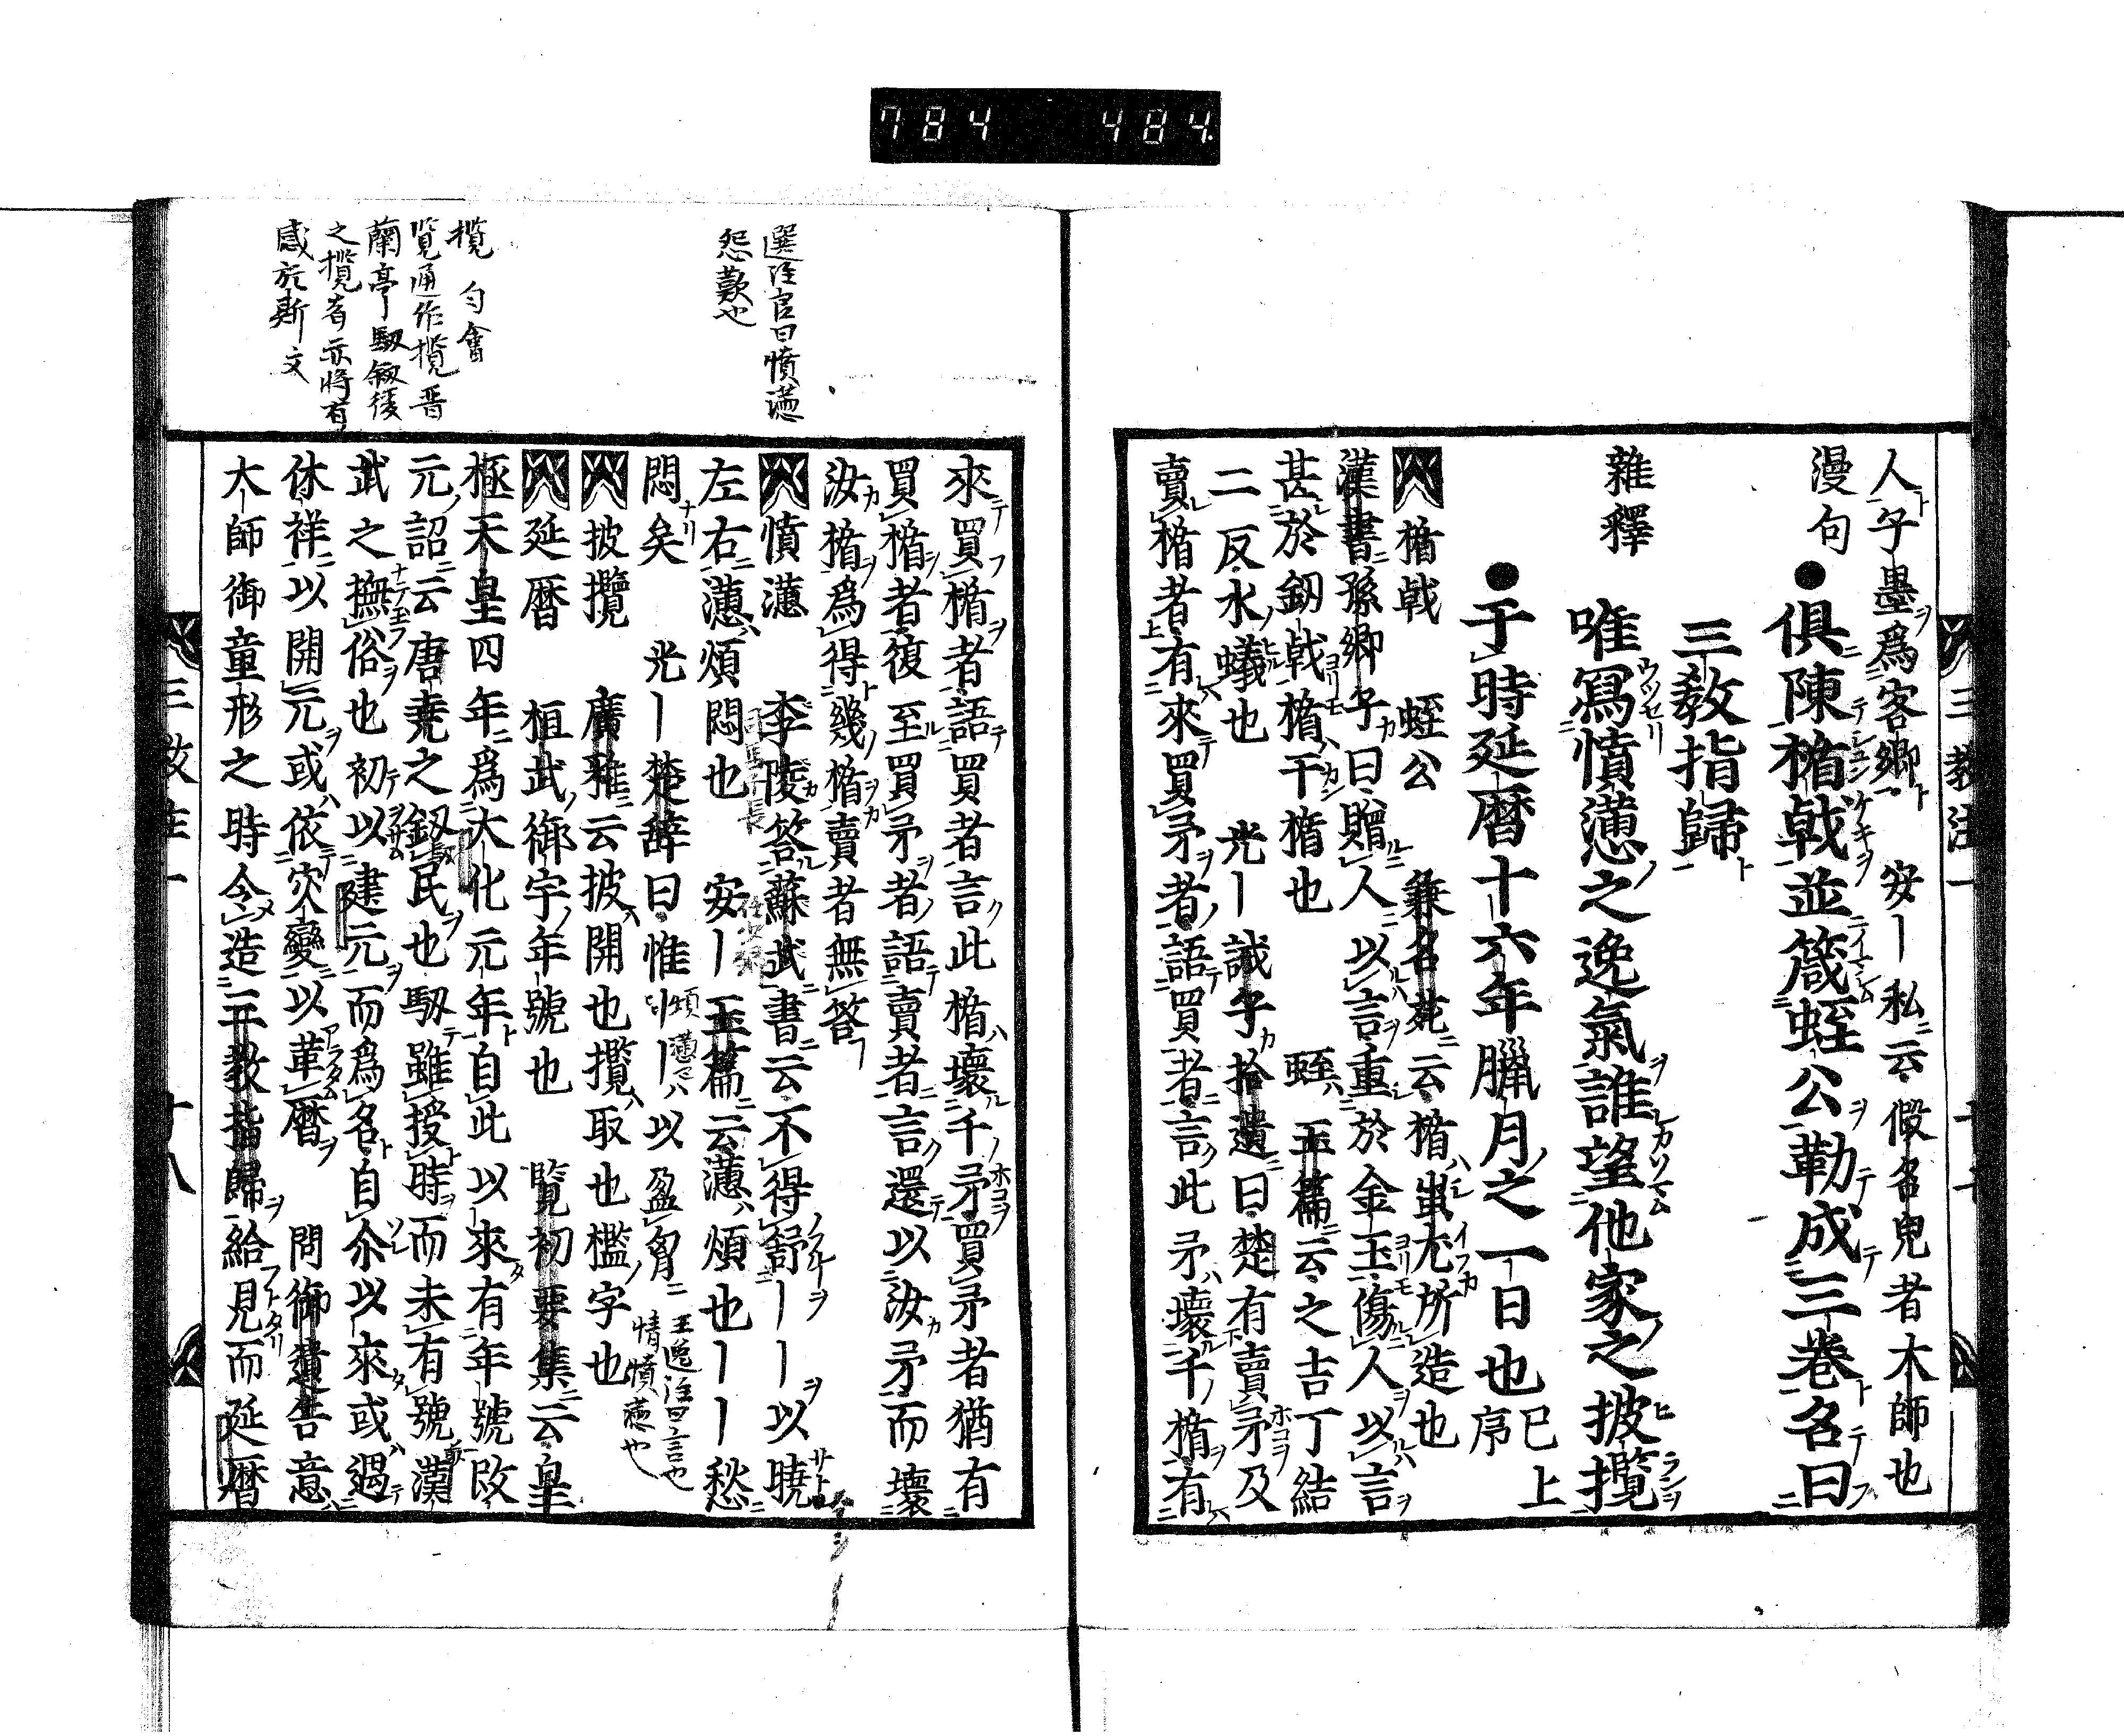 784 484.
三教注一
人子墨爲客卿 安ー私云假名皃者木師也
漫句
●俱陳楯戟並箴蛭公勒成三巻名曰
三教指歸
雜釋
唯寫憤懣之逸氣誰望他家之披攬
●于時延暦十六年臘月之一日也已上序
楯戟 蛭公 兼名苑云楯蚩尤所造也
漢書孫卿子曰贈人以言重於金玉傷人以言
甚於釼戟楯干楯也 蛭玉篇云之吉丁結
二反水蟻也 光ー誡子拾遺曰楚有賣矛及
賣楯者有來買矛者語買者言此矛壞千楯有
來買楯者語買者言此楯壞千矛買矛者猶有
買楯者復至買矛者語賣者言還以汝矛而壞
汝楯爲得幾楯賣者無答
憤懣 李陵答蘇武書云不得舒ーーー以曉
左右懣煩悶也 安ー玉篇云懣煩也ーー愁
悶矣 光ー楚辞曰惟ーー以盈匈
王逸注曰言也
情憤懣也
披攬 廣雅云披開也攬取也檻字也
延暦 桓武御宇年號也 覧初要集云皇
極天皇四年爲大化元年自此以來有年號改
元詔云唐堯之釼民也馭雖授時而未有號漢
武之撫俗也初以建元而爲名自尒以來或遇
休祥以開元或依灾變以革暦 問御遺告意
大師御童形之時令造三教指歸給見而延暦
三教注一 十八
選注官曰憤懣
怨歎也
攬 匀會
覧通作攬晋
蘭亭 後
之攬者亦將有
感於斯文